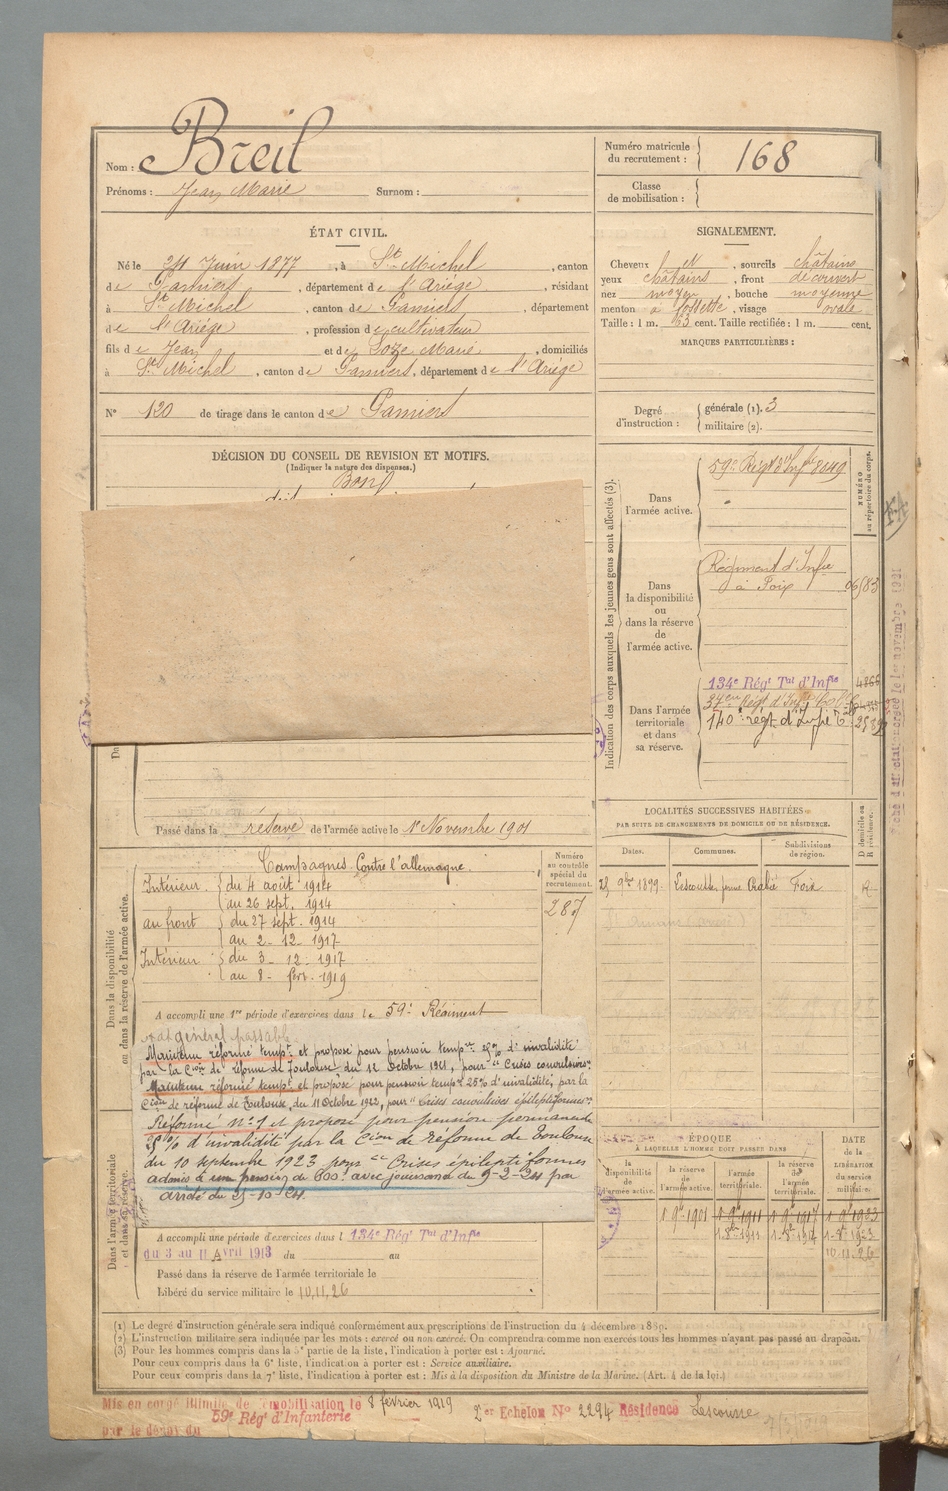 Nom : Breil
Prénoms : Jean Marie Surnom :
Numéro matricule du recrutement : 168
Classe de mobilisation :
ÉTAT CIVIL.
Né le 24 Juin 1877, à St Michel, canton
de Pamiers, département de l'Ariége, résidant
à St Michel, canton de Pamiers, département
de l'Ariége, profession de cultivateur
fils de Jean et de Loze Marie, domiciliés
à St Michel, canton de Pamiers, département de l'Ariége
N° 120 de tirage dans le canton de Pamiers
SIGNALEMENT.
Cheveux et, sourcils châtains
yeux châtains, front découvert
nez moyen, bouche moyenne
menton à fossette, visage ovale
Taille : 1 m. 63 cent. Taille rectifiée : 1 m. cent.
MARQUES PARTICULIÈRES :
Degré d'instruction : générale (1). 3
militaire (2).
DÉCISION DU CONSEIL DE REVISION ET MOTIFS.
(Indiquer la nature des dispenses.)
Bon
Indication des corps auxquels les jeunes gens sont affectés (3).
NUMÉRO au répertoire du corps.
Dans l'armée active.
59e Régt d'Infie 8449
Dans la disponibilité ou dans la réserve de l'armée active.
Régiment d'Infie
à Foix 06583
Dans l'armée territoriale et dans sa réserve.
134e Régt Tal d'Infie
37em Régt d'Infie
140e régt d'Infie T.
Passé dans la réserve de l'armée active le 1er Novembre 1901
Dans la disponibilité ou dans la réserve de l'armée active.
Campagnes Contre l'allemagne.
Intérieur du 4 août 1914
au 26 sept. 1914
au front du 27 sept. 1914
au 2-12-1917
Intérieur du 3-12-1917
au 8-fevr. 1919
Numéro au contrôle spécial du recrutement.
287
A accompli une 1re période d'exercices dans le 59e Régiment
LOCALITÉS SUCCESSIVES HABITÉES
PAR SUITE DE CHANGEMENTS DE DOMICILE OU DE RÉSIDENCE.
D domicile ou R résidence.
Dates. Communes. Subdivisions de région.
25 9bre 1899 Lescousse, ferme Foix R
etat général passable
Maintenu réformé tempre et proposé pour pension tempre 25% d'invalidité
par la Cion de réforme de Toulouse du 12 Octobre 1921, pour "Crises convulsives"
Maintenu réformé tempre et proposé pour pension tempre 25% d'invalidité, par la
Cion de réforme de Toulouse, du 11 Octobre 1922, pour "Crises convulsives épileptiformes"
Réformé n° 1 et proposé pour pension permanente
25% d'invalidité par la Cion de réforme de Toulouse
du 10 septembre 1923 pour "Crises épileptiformes
admis à une pension de 600f avec jouissance du 9-2-21 par
arrêté du 25-10-24.
Dans l'armée territoriale et dans sa réserve.
A accompli une période d'exercices dans l 134e Régt Tal d'Infie
du 3 au 11 Avril 1913 du au
Passé dans la réserve de l'armée territoriale le
Libéré du service militaire le 10.11.26
ÉPOQUE
A LAQUELLE L'HOMME DOIT PASSER DANS
la disponibilité de l'armée active. la réserve de l'armée active. l'armée territoriale. la réserve de l'armée territoriale.
DATE DE LA LIBÉRATION du service militaire.
1 9bre 1901 1 9bre 1911 1 9bre 1917 1 9bre 1923
1-8-1911 1-8-1917 1-8-1923
10.11.26
(1) Le degré d'instruction générale sera indiqué conformément aux prescriptions de l'instruction du 4 décembre 1889.
(2) L'instruction militaire sera indiquée par les mots : exercé ou non exercé. On comprendra comme non exercés tous les hommes n'ayant pas passé au drapeau.
(3) Pour les hommes compris dans la 5e partie de la liste, l'indication à porter est : Ajourné.
Pour ceux compris dans la 6e liste, l'indication à porter est : Service auxiliaire.
Pour ceux compris dans la 7e liste, l'indication à porter est : Mis à la disposition du Ministre de la Marine. (Art. 4 de la loi.)
Mis en congé illimité de démobilisation le 8 février 1919
2er Echelon No 2294 Résidence Lescousse
par le dépôt du 59e Régt d'Infanterie